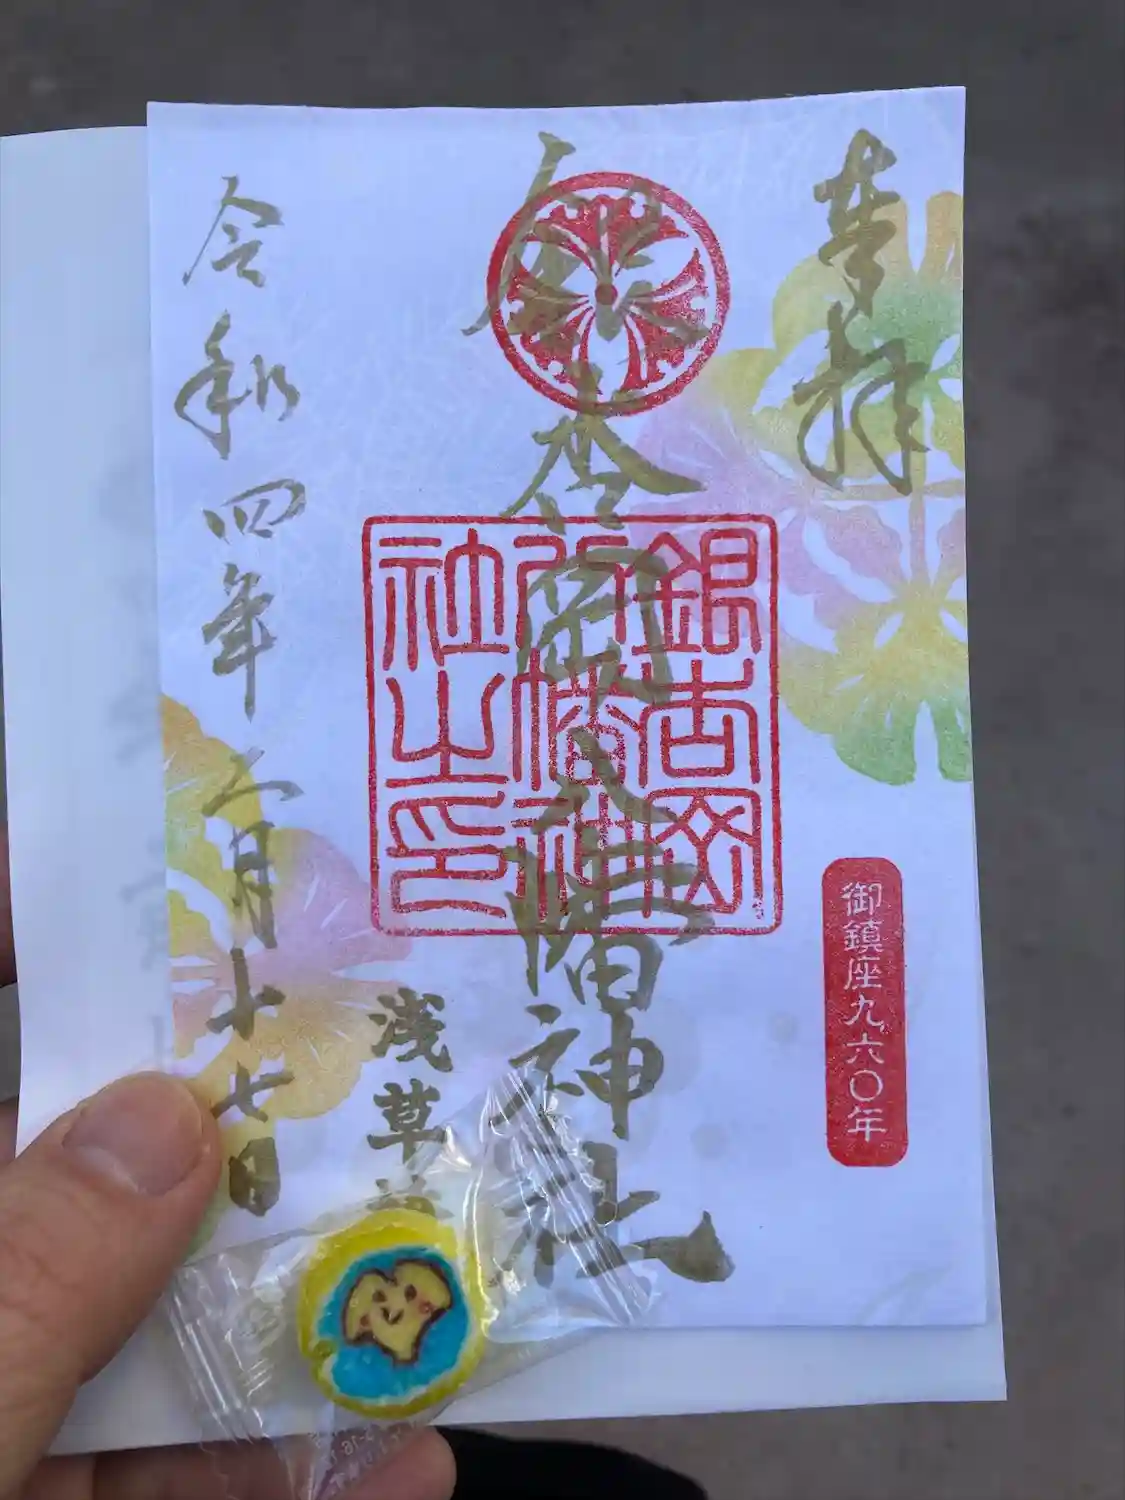 奉拝
御鎮座九六〇年
銀杏岡八幡神社
銀杏岡
八幡神
社之印
浅草
令和四年二月十七日